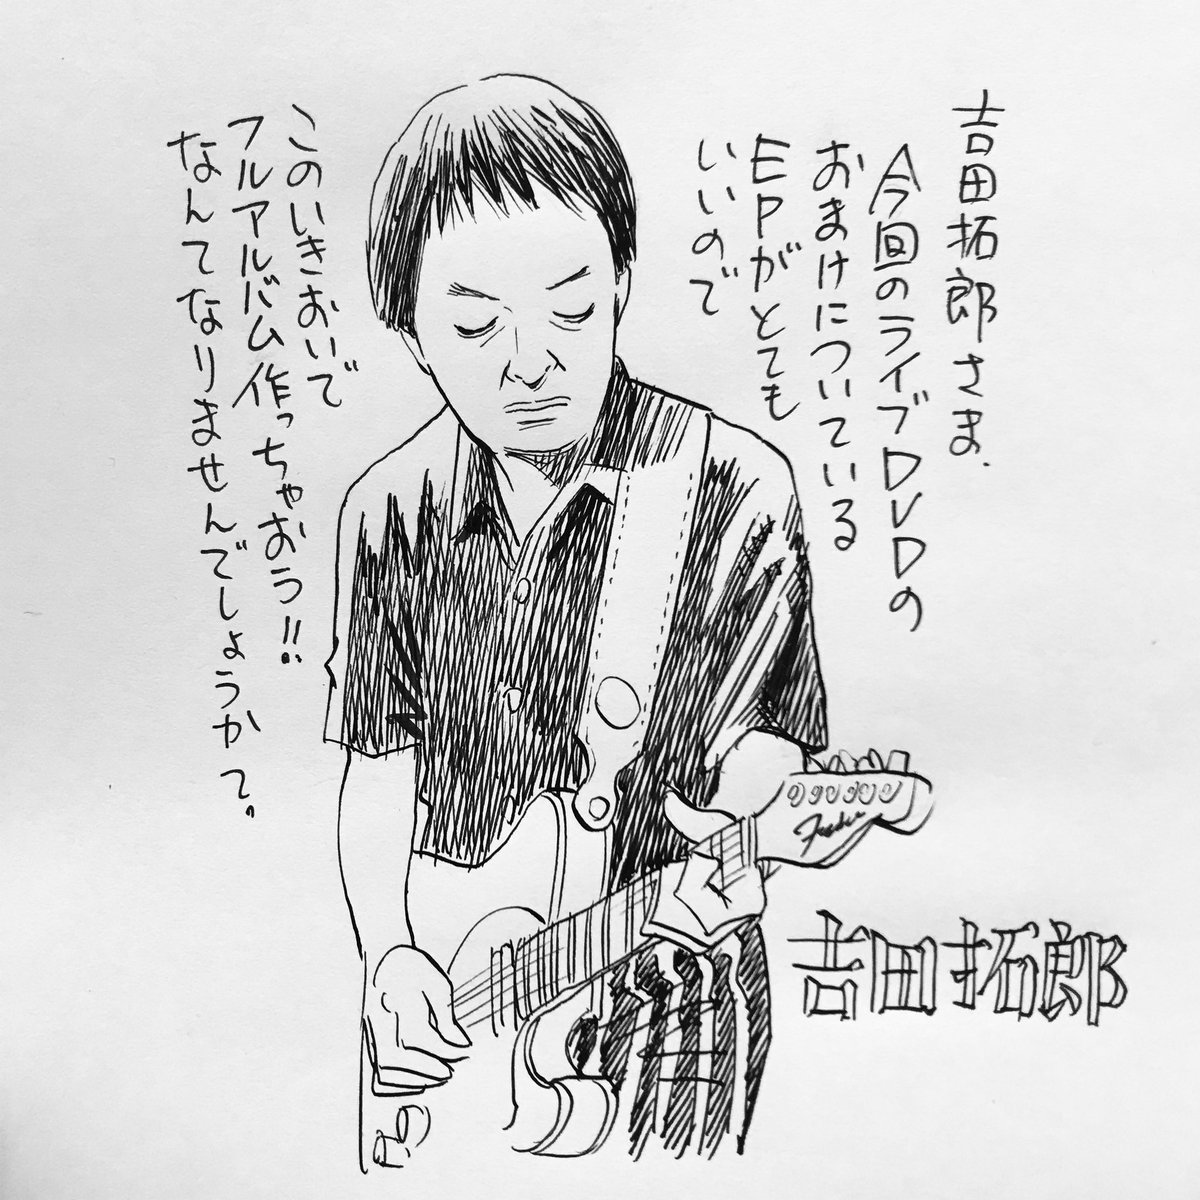 吉田拓郎さま.
今回のライブDVDの
おまけについている
EPがとても
いいので
このいきおいで
フルアルバム作っちゃおう!!
なんてなりませんでしょうかて。
Fender
吉田拓郎